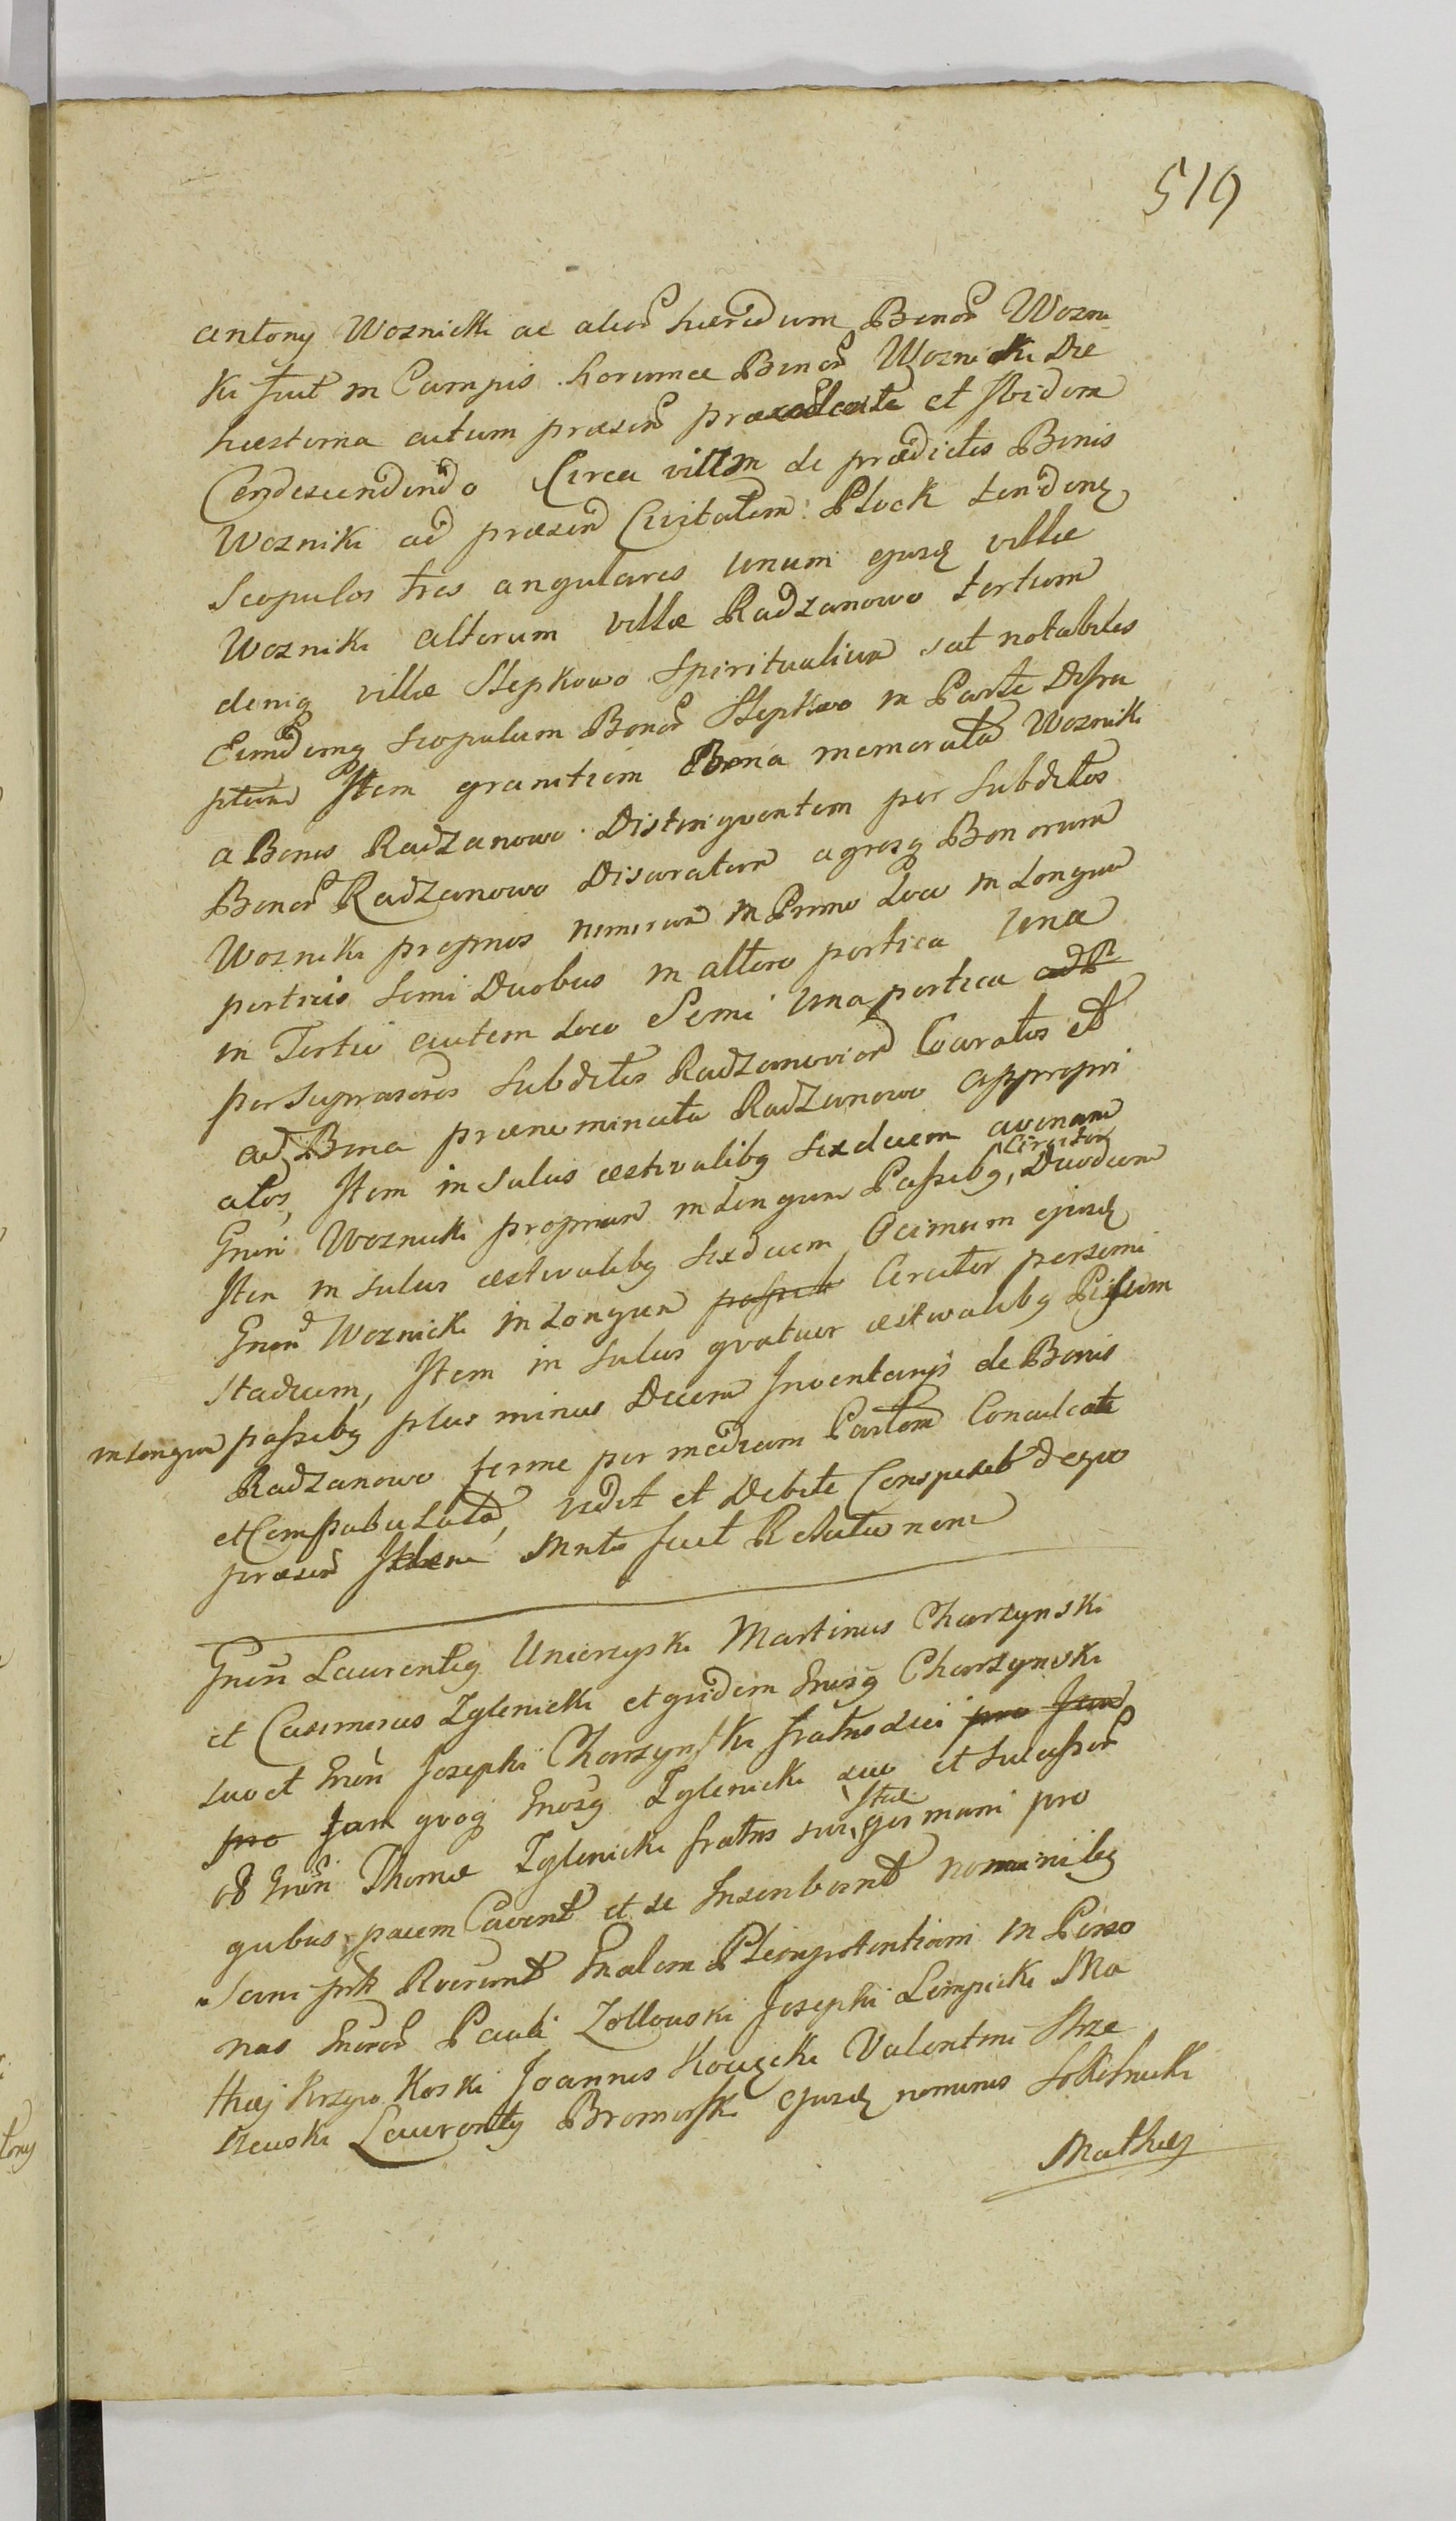 519
antony Woznicki ac alior haeredum Bonor Wozni
ki fuit in Campis horumce Bonor Woznicki Die
hesterna actum praesen praecedente et Ibidem
Condescendendo Circa viam de praedictis Bonis
Wozniki ad praesen Civitatem Plock tendenq
Scopulos tres angulares unum ejusq villae
Wozniki alterum villae Radzanowo tertium
deniq villae Slepkowo Spiritualium sat notabiles
Eundemq Scopulum Bonor Slepkowo in Parte Disru
ptum Item granitiem Bona memorata Wozniki
a Bonis Radzanowo Distinguentem per Subditos
Bonor Radzanowo Disaratam agrosq Bonorum
Wozniki proprios nimirum in Primo Loco in Longum
perticis Semi Duobus in altero pertica Una
in Tertio autem Loco Semi Una pertica
per Suprascos Subditos Radzanovien Coaratos et
ad Bona praenominata Radzanowo appropri
atos, Item in Sulcis aestivalibq Sexdecem avenam
Gneri Woznicki propriam in Longum Passibq, Circiter Duodecem
Item in Sulcis aestivalibq Sexdecem Ocimum ejusq
Gnen Woznicki in Longum passib Circiter per semi
Stadium, Item in Sulcis quatuor aestivalibq Pisum
in Longum passibq plus minus Decem Inventarij de Bonis
Radzanowo ferme per mediam Partem Conculcata
et Compabulata, vidit et Debite Conspexit de quo
praesen Idem Mnter fecit Relationem
Gnen Laurentiq Unierzyski Martinus Charzynski
et Casimirus Zglenicki et quidem Gnosq Charzynski
suo et Gnen Josephi Charzynski fratris sui pro Jam
pro Jam quoq Gnosq Zglenicki suo et Sucessor
ob Gnen Thomae Zglenicki fratris sui, germani pro
quibus pacem Cavent et se Inscribant nominibq
Sani Roborunt Gnalem Plenipotentiam in Perso
nas Gneror Pauli Zoltowski Josephi Lempicki Ma
thiaj Krzywkoski Joannis Kowzcki Valentini Strze
szewski Laurentij Bromirski ejusq nominis Sokolnicki
Mathiaj